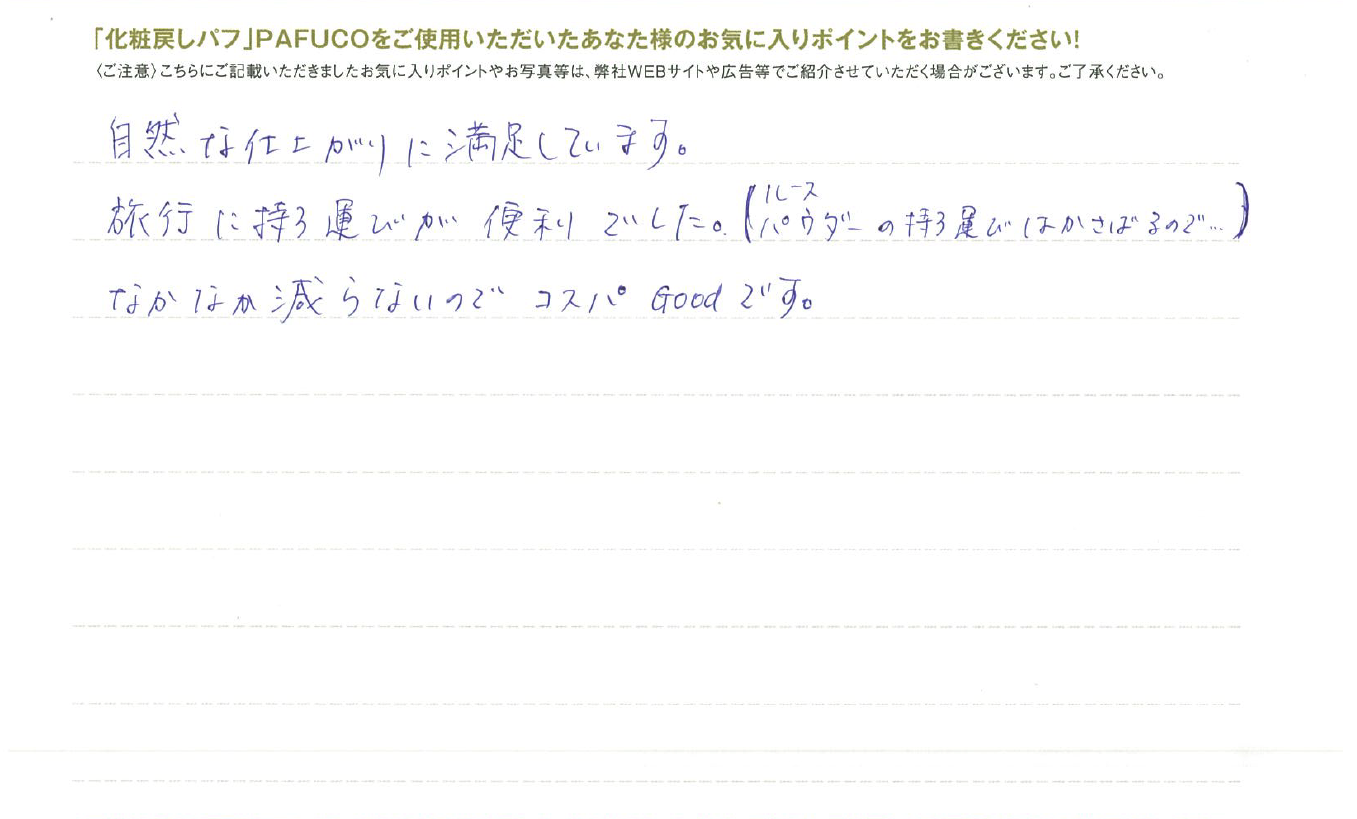 「化粧戻しパフ」PAFUCOをご使用いただいたあなた様のお気に入りポイントをお書きください!
〈ご注意〉こちらにご記載いただきましたお気に入りポイントやお写真等は、弊社WEBサイトや広告等でご紹介させていただく場合がございます。ご了承ください。
自然な仕上がりに満足しています。
旅行に持ち運びが便利でした。(ルースパウダーの持ち運びはかさばるので…)
なかなか減らないのでコスパGoodです。